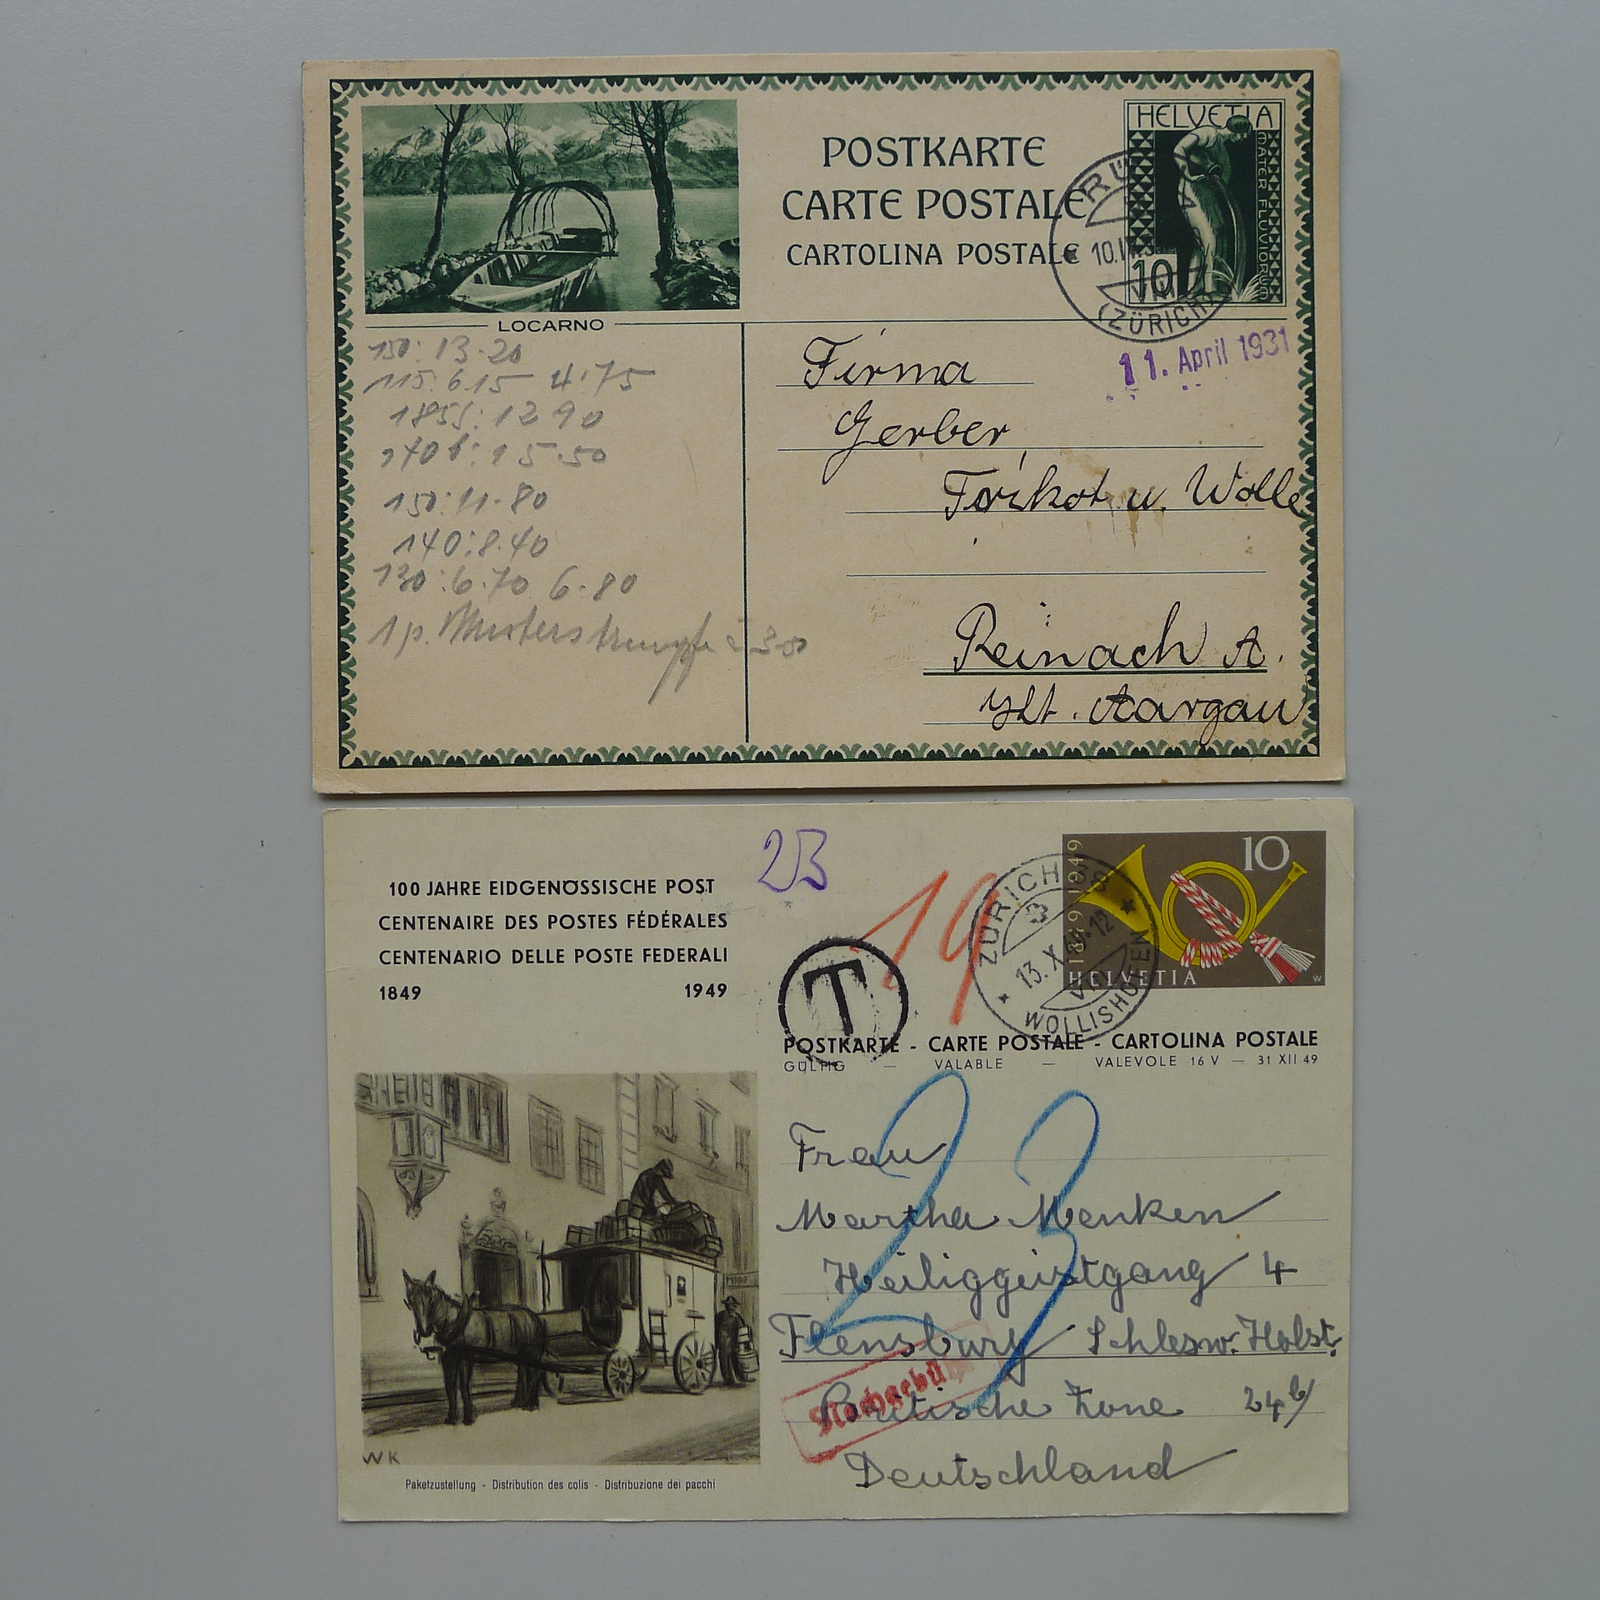 POSTKARTE
CARTE POSTALE
CARTOLINA POSTALE
HELVETIA
MATER FLUVIORUM
10
(ZÜRICH)
11. April 1931
LOCARNO
150: 13.20
115. 6.15 4.75
150: 11.80
140: 8.40
130: 6.70 6.80
1 p. Musterstrumpf
Firma
Gerber
Trikot u. Wolle
Reinach A.
Kt. Aargau
100 JAHRE EIDGENÖSSISCHE POST
CENTENAIRE DES POSTES FÉDÉRALES
CENTENARIO DELLE POSTE FEDERALI
1849 1949
23
19
T
ZÜRICH
13. X. 12
WOLLISHOFEN
1849 1949
10
HELVETIA
W
POSTKARTE - CARTE POSTALE - CARTOLINA POSTALE
GÜLTIG — VALABLE — VALEVOLE 16 V — 31 XII 49
23
Frau
Martha Menken
Heiliggeistgang 4
Flensburg Schlesw. Holst.
Britische Zone 24b/
Deutschland
Nachgebü
WK
Paketzustellung - Distribution des colis - Distribuzione dei pacchi